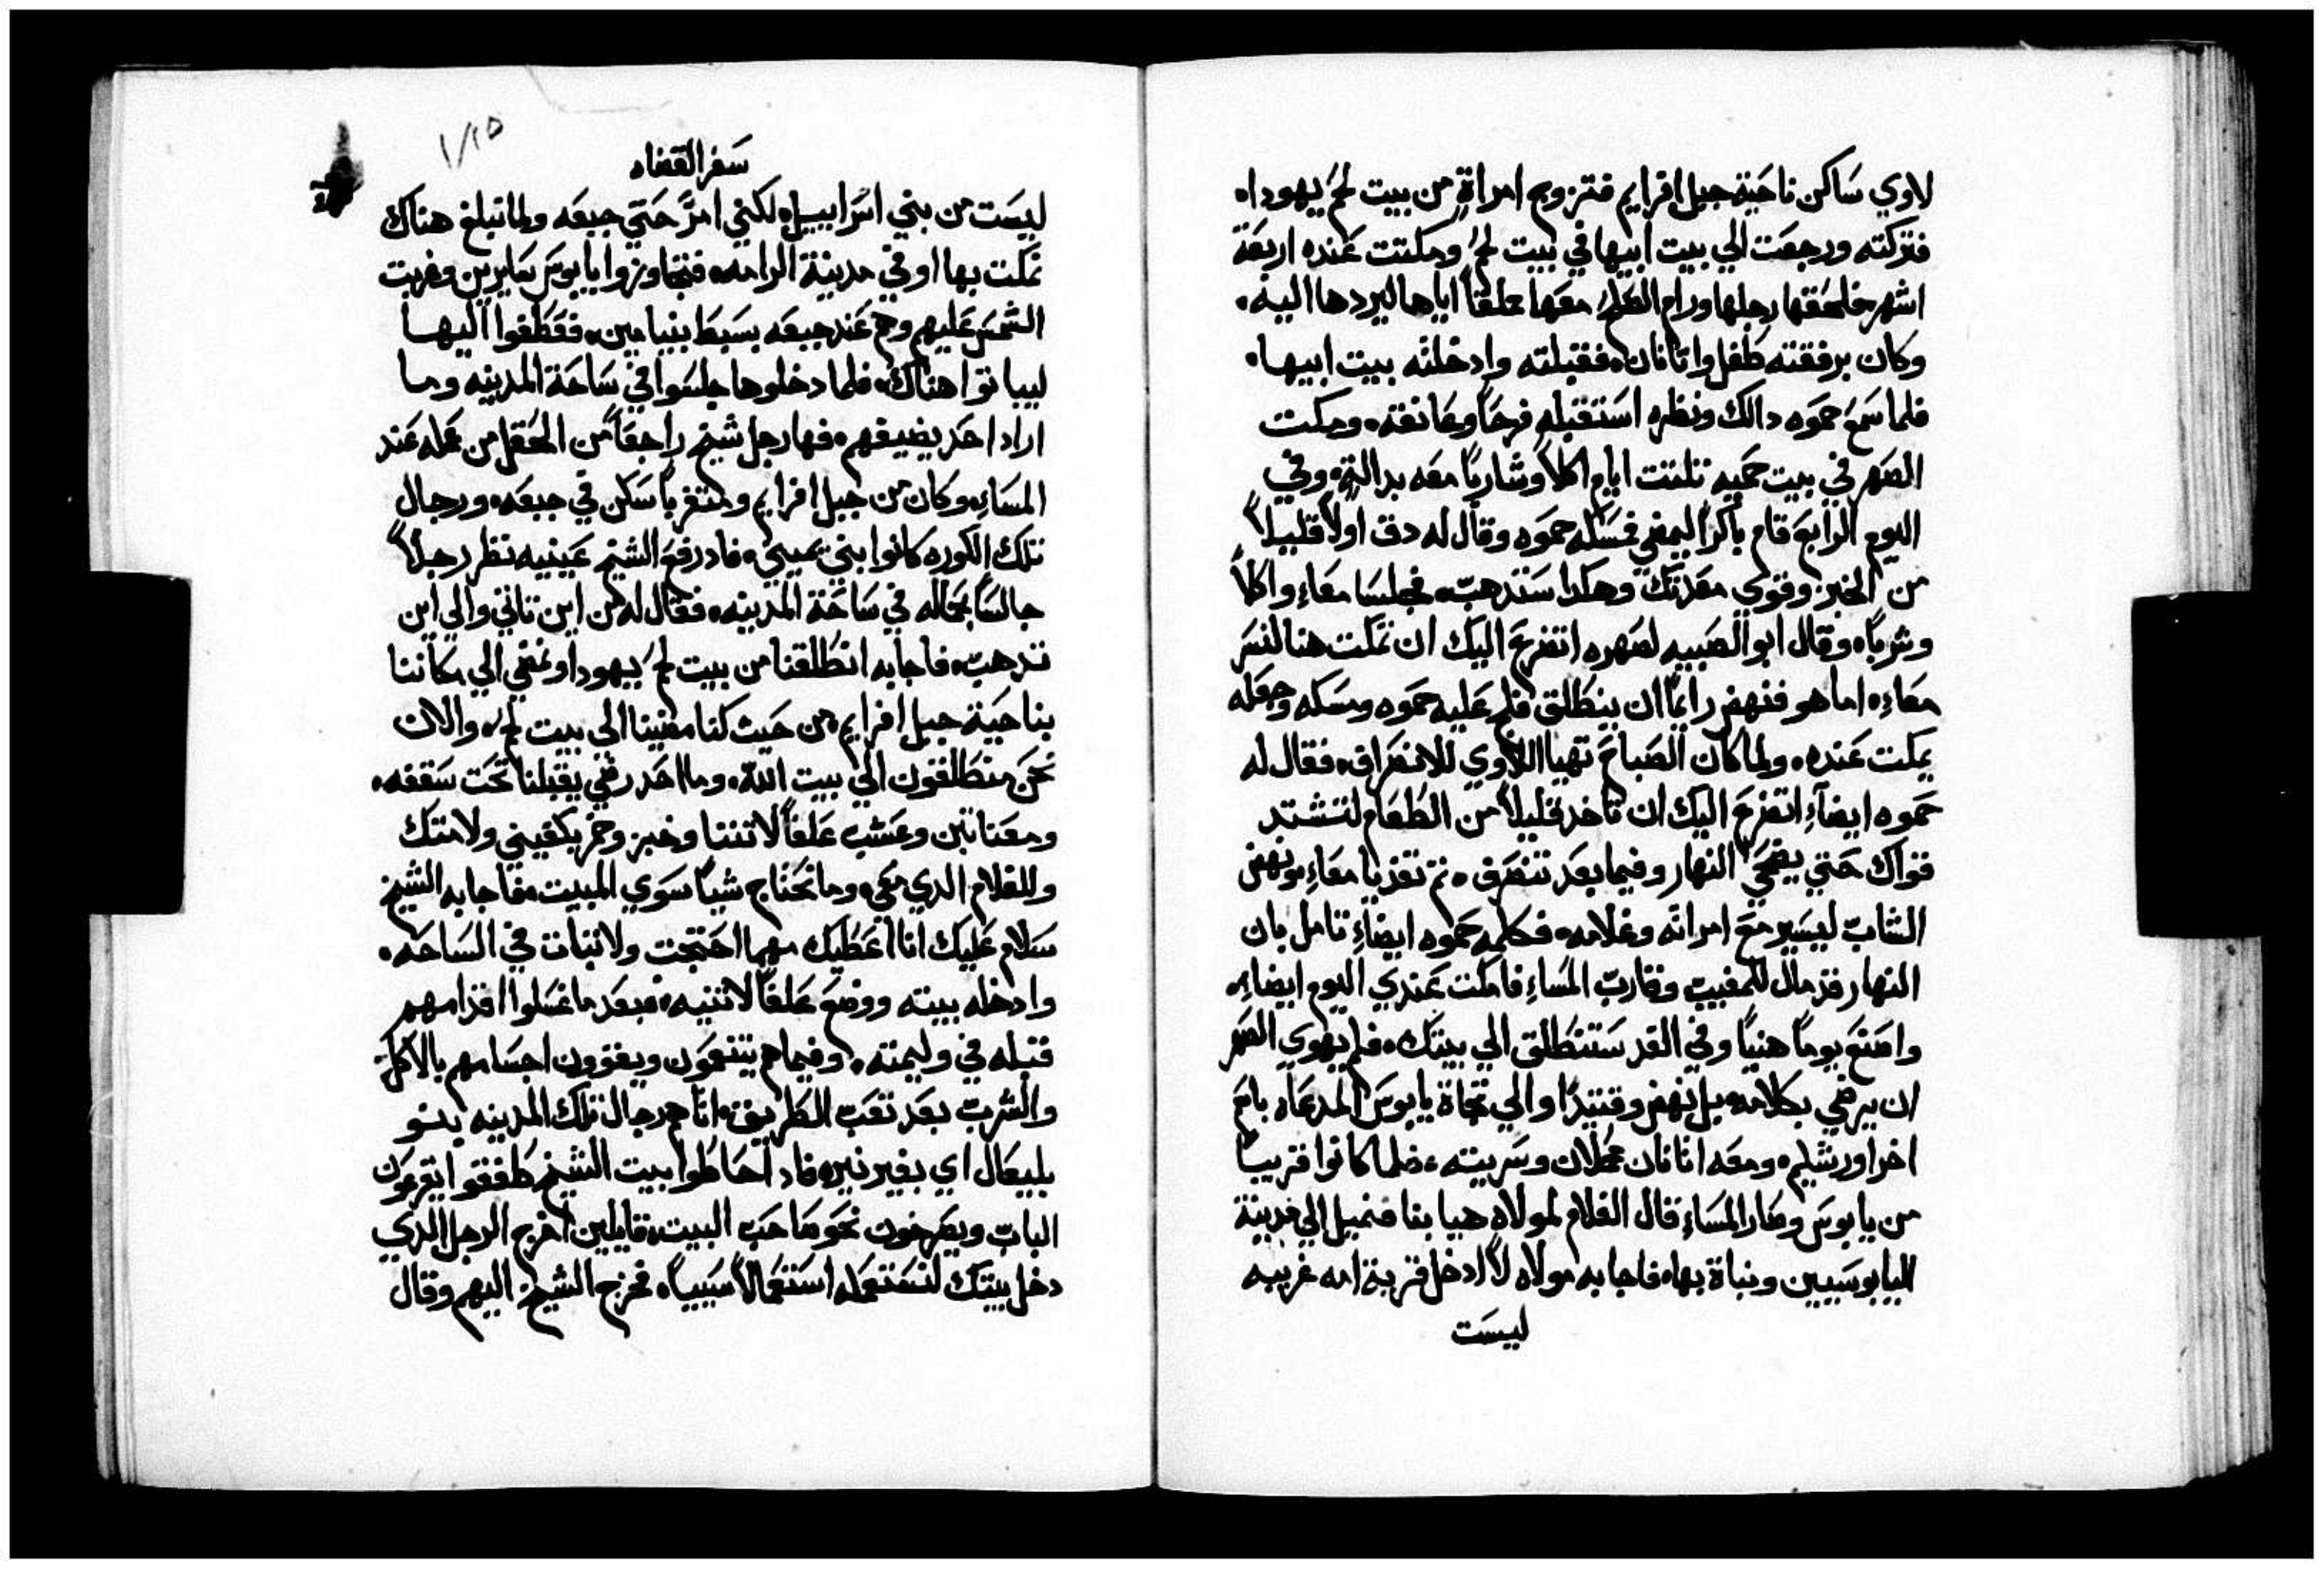 لاوي ساكن ناحية جبل افرايم فتزوج امراة من بيت لحم يهودا
فتركته ورجعت الي بيت ابيها في بيت لحم ومكتت عنده اربعة
اشهر فلحقها رجلها ورام الصلح معها متملقاً اياها ليردها اليه
وكان برفقته طفل واتانان فقبلته وادخلته بيت ابيها
فلما سمع حموه دالك ونظره استقبله فرحاً وعانقه ومكت
الصهر في بيت حميه تلتت ايام اكلاً وشارباً معه بدالة وفي
اليوم الرابع قام باكراً ليمضي فمسكه حموه وقال له دق اولاً قليلاً
من الخبز وقوي معدتك وهكدا ستدهب فجلسا معاً واكلا
وشربا وقال ابو الصبيه لصهره اتضرع اليك ان تمكت هنا لنسر
معاً اما هو فنهض رايماً ان ينطلق فلح عليه حموه ومسكه وجعله
يمكت عنده ولما كان الصباح تهيا اللاوي للانصراف فقال له
حموه ايضاً اتضرع اليك ان تاخد قليلاً من الطعام لتشتد
قواك حتي يضحي النهار وفيما بعد تنصرف تم تغديا معاً ونهض
الشاب ليسير مع امراته وغلامه فكلمه حموه ايضاً تامل بان
النهار قد مال للمغيب وقارب المساء فامكت عندي اليوم ايضاً
واصنع يوماً هنياً وفي الغد ستنطلق الي بيتك فلم يهوي الصهر
ان يرضي بكلامه بل نهض وقتيدا والي تجاة يابوس المدعاه باسم
اخر اورشليم ومعه اتانان محملان وسريته فلما كانوا قريباً
من يابوس وصار المساء قال الغلام لمولاه هيا بنا فنميل الي مدينة
اليابوسيين ونباة بها فاجابه مولاه لا ادخل قرية امه غريبه
ليست
سفر القضاه
ليست من بني اسراييل لكني امر حتي جبعه ولما نبلغ هناك
نمكت بها او في مدينة الرامه فتجاوزوا يابوس سايرين وغربت
الشمس عليهم وهم عند جبعه بسبط بنيامين فقطفوا اليها
ليباتوا هناك فلما دخلوها جلسوا في ساحة المدينه وما
اراد احد يضيفهم فها رجل شيخ راجعاً من الحقل من عمله عند
المساء وكان من جبل افرايم ومتغرباً سكن في جبعه ورجال
تلك الكوره كانوا بني يميني فاد رفع الشيخ عينيه نظر رجلاً
جالساً بحاله في ساحة المدينه فقال له من اين تاتي والي اين
تدهب فاجابه انطلقنا من بيت لحم يهودا ونمضي الي مكاننا
بناحية جبل افرايم من حيت كنا مضينا الي بيت لحم والان
نحن منطالقون الي بيت الله وما احد رضي يقبلنا تحت سقفه
ومعنا تبن وعشب علفاً لاتننا وخبز وخمر يكفيني ولامتك
وللغلام الدي معي وما نحتاج شياً سوي المبيت فاجابه الشيخ
سلام عليك انا اعطيك مهما احتجت ولا تبات في الساحه
وادخله بيته ووضع علفاً لاتنيه فبعد ما غسلوا اقدامهم
قبله في وليمته وفيما هم يتنعمون ويقوون اجسامهم بالاكل
والشرب بعد تعب الطريق اتاهم رجال تلك المدينه بنو
بليعال اي بغير نير فاد احاطوا بيت الشيخ طفقوا يقرعون
الباب ويصرخون نحو صاحب البيت قايلين اخرج الرجل الدي
دخل بيتك لنستعمله استعمالاً سيياً فخرج الشيخ اليهم وقال